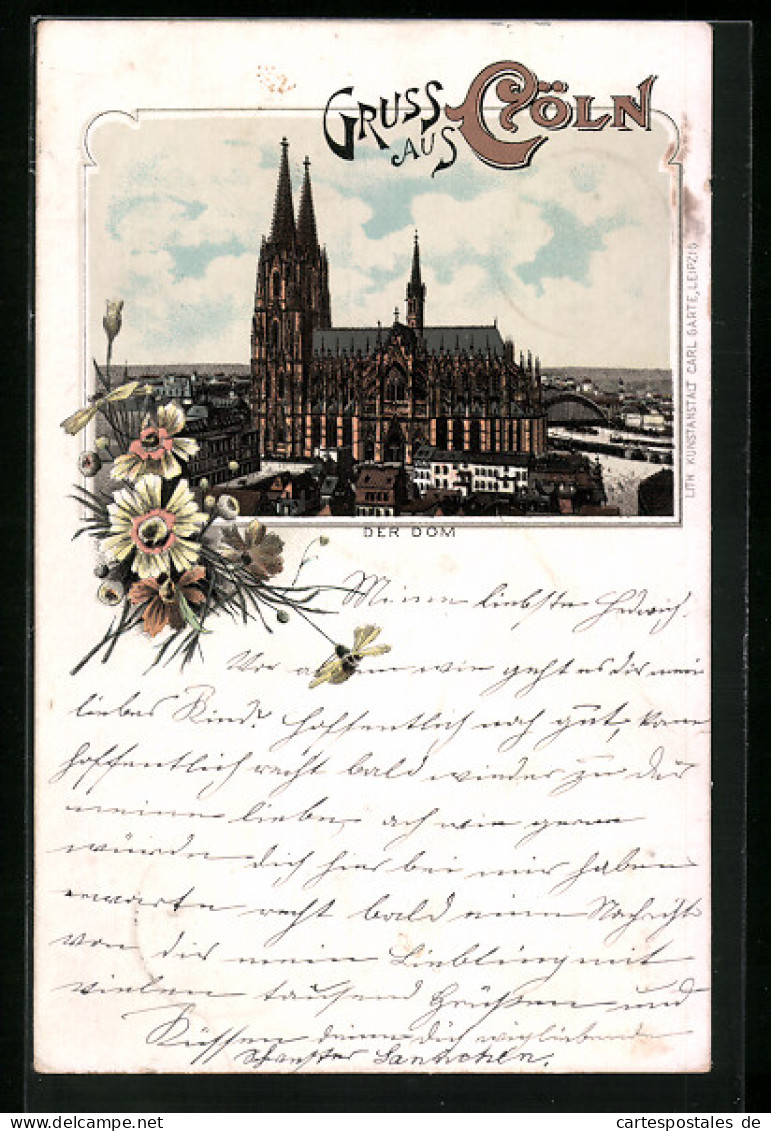 GRUSS AUS CÖLN
LITH KUNSTANSTALT CARL GARTE, LEIPZIG
DER DOM
Meine liebste Hedwich.
Vor allem wie geht es dir mein
liebes Kind? hoffentlich noch gut, kom
hoffentlich recht bald wieder zu dir
meine liebe, ach wie gerne
würde dich hier bei mir haben
erwarte recht bald eine Nachricht
von dir mein Liebling mit
vielen tausend Grüßen und
Küssen deine dich
cartespostales de